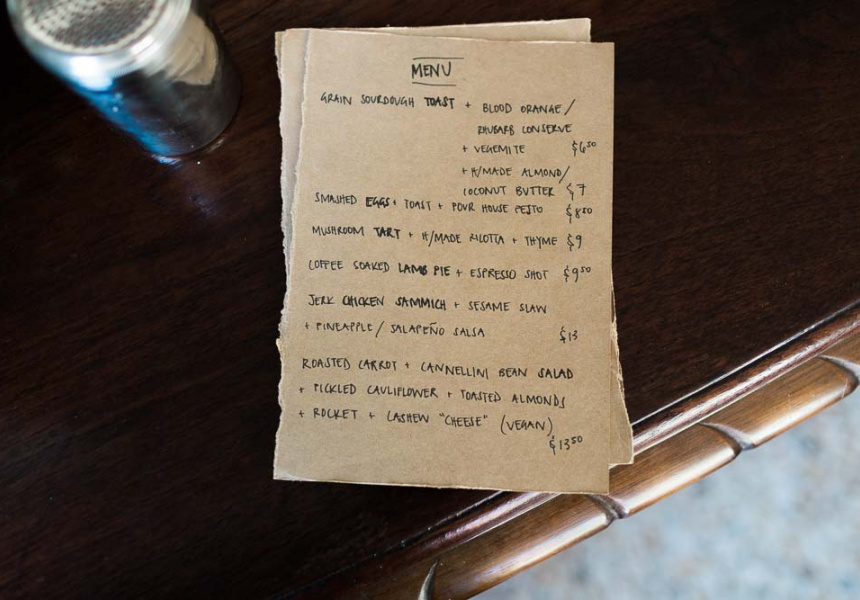 MENU
GRAIN SOURDOUGH TOAST + BLOOD ORANGE/
RHUBARB CONSERVE
+ VEGEMITE $6.50
+ H/MADE ALMOND/
COCONUT BUTTER $7
SMASHED EGGS + TOAST + POUR HOUSE PESTO $8.50
MUSHROOM TART + H/MADE RICOTTA + THYME $9
COFFEE SOAKED LAMB PIE + ESPRESSO SHOT $9.50
JERK CHICKEN SAMMICH + SESAME SLAW
+ PINEAPPLE/ SALAPEÑO SALSA $13
ROASTED CARROT + CANNELLINI BEAN SALAD
+ PICKLED CAULIFLOWER + TOASTED ALMONDS
+ ROCKET + CASHEW "CHEESE" (VEGAN)
$13.50